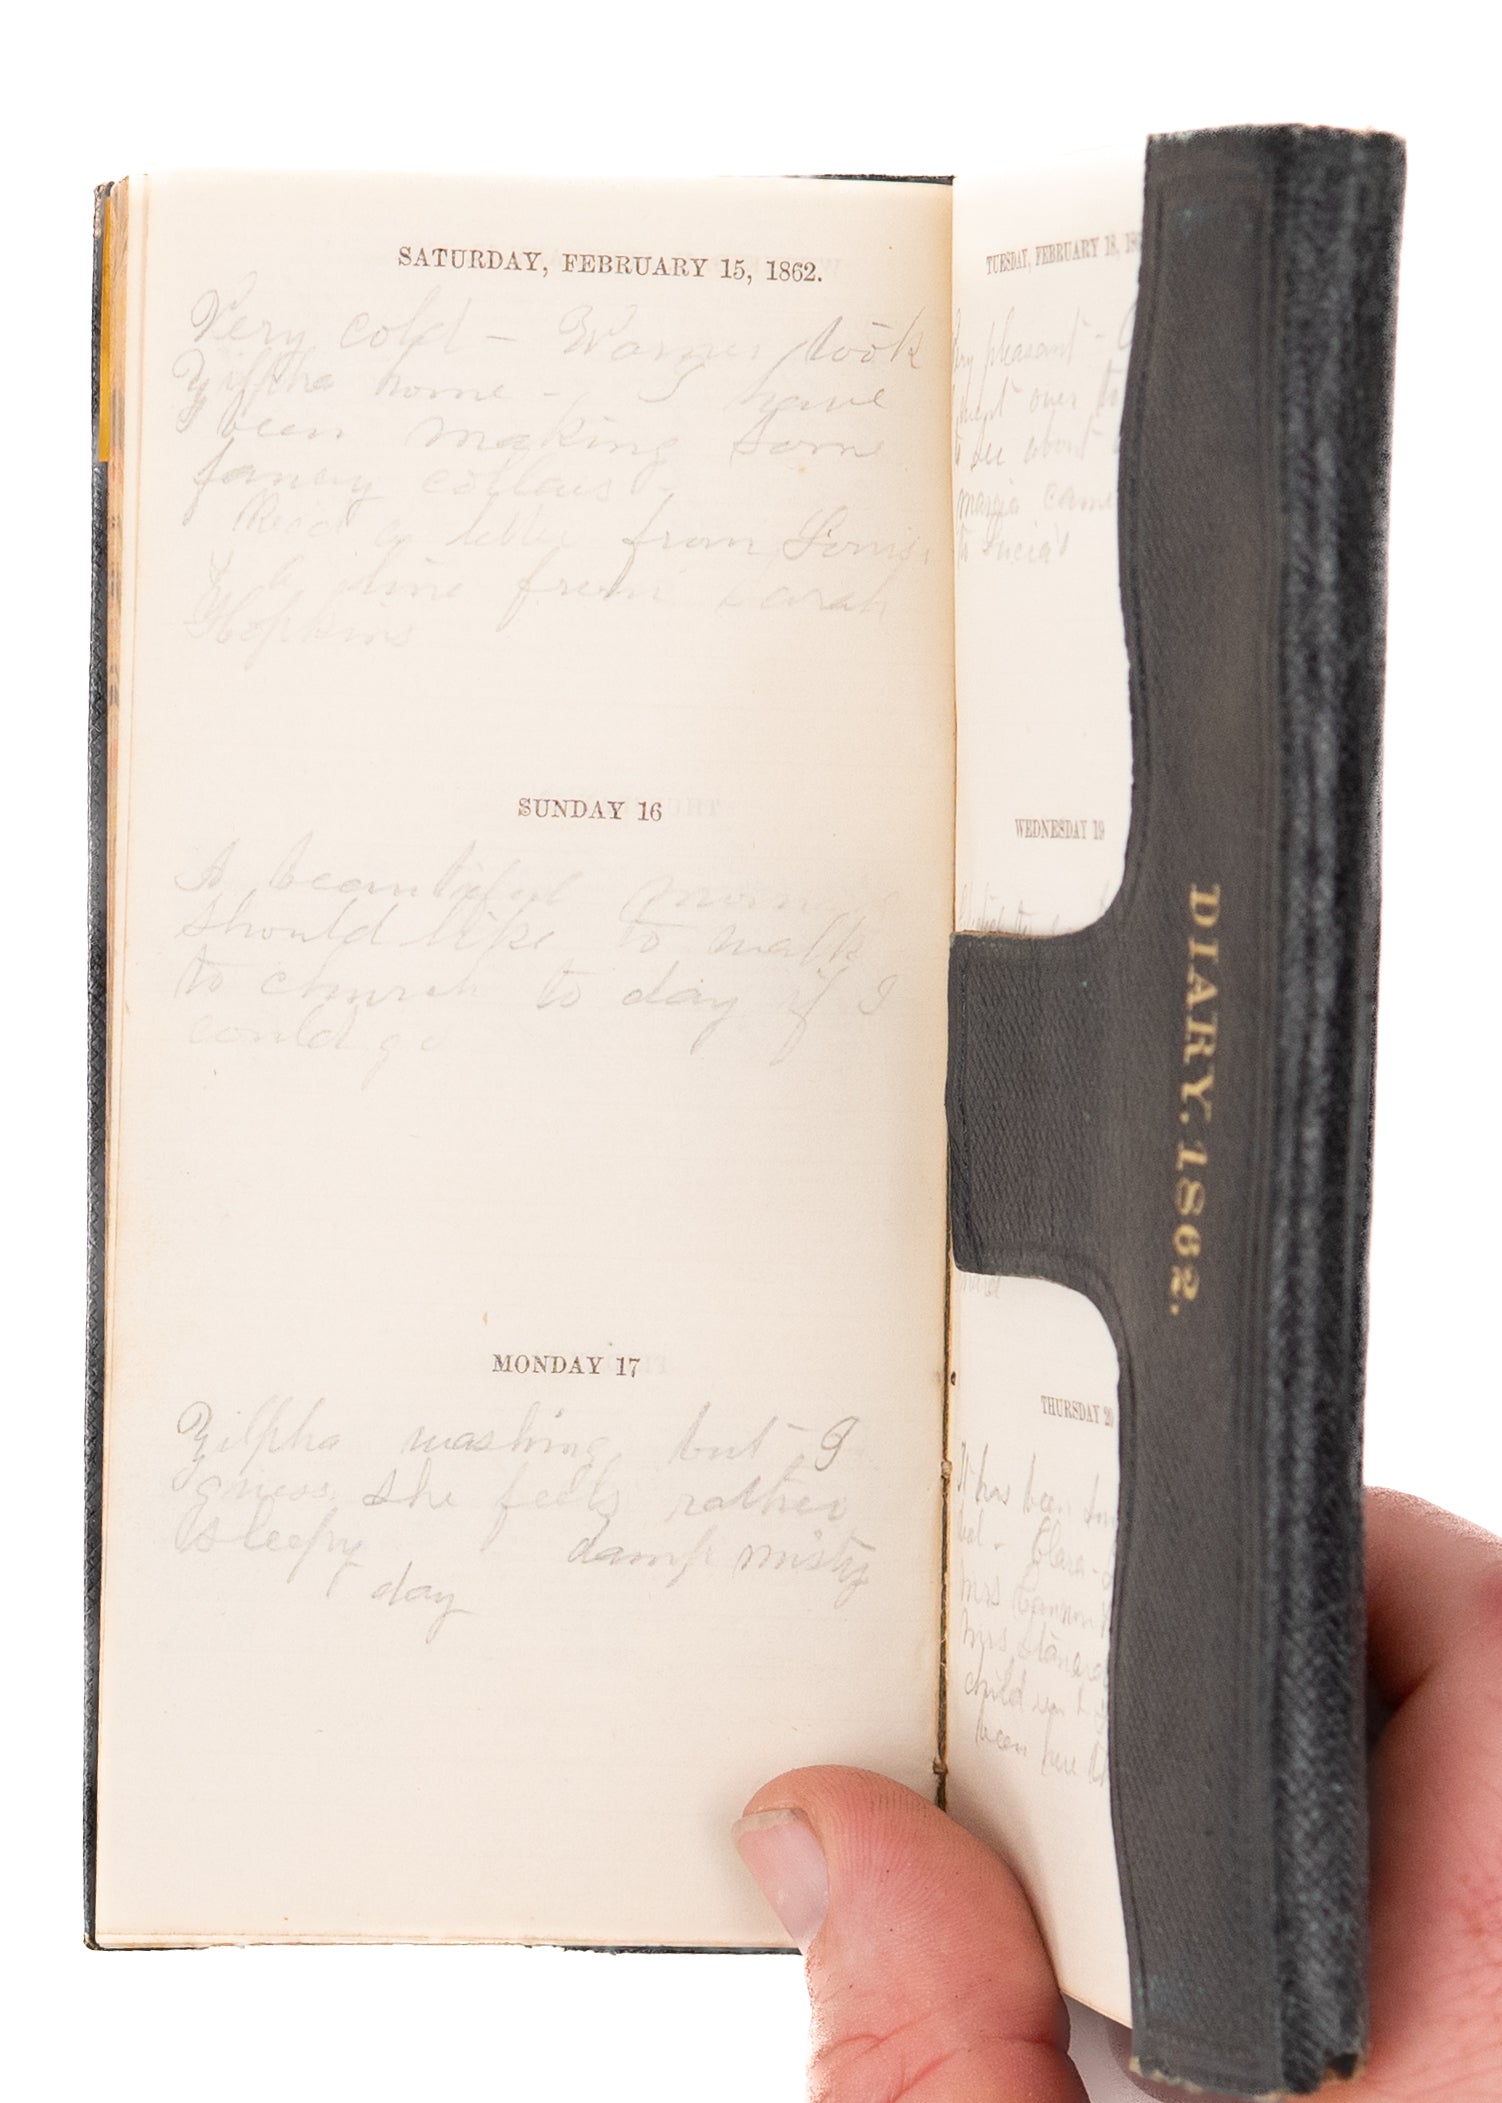 SATURDAY, FEBRUARY 15, 1862.
Very cold - Warner took
Zilpha home - I have
been making some
fancy collars -
Rec'd a letter from
& a line from Sarah
Hopkins
SUNDAY 16
A beautiful morning
should like to walk
to church to day if I
could go
MONDAY 17
Zilpha washing but I
guess she feels rather
sleepy damp misty
day
TUESDAY, FEBRUARY 18, 18
pleasant -
over to
to see about
came
to Lucia's
WEDNESDAY 19
THURSDAY 20
It has been
Clara
Mrs
Mrs
child
been here
DIARY. 1862.